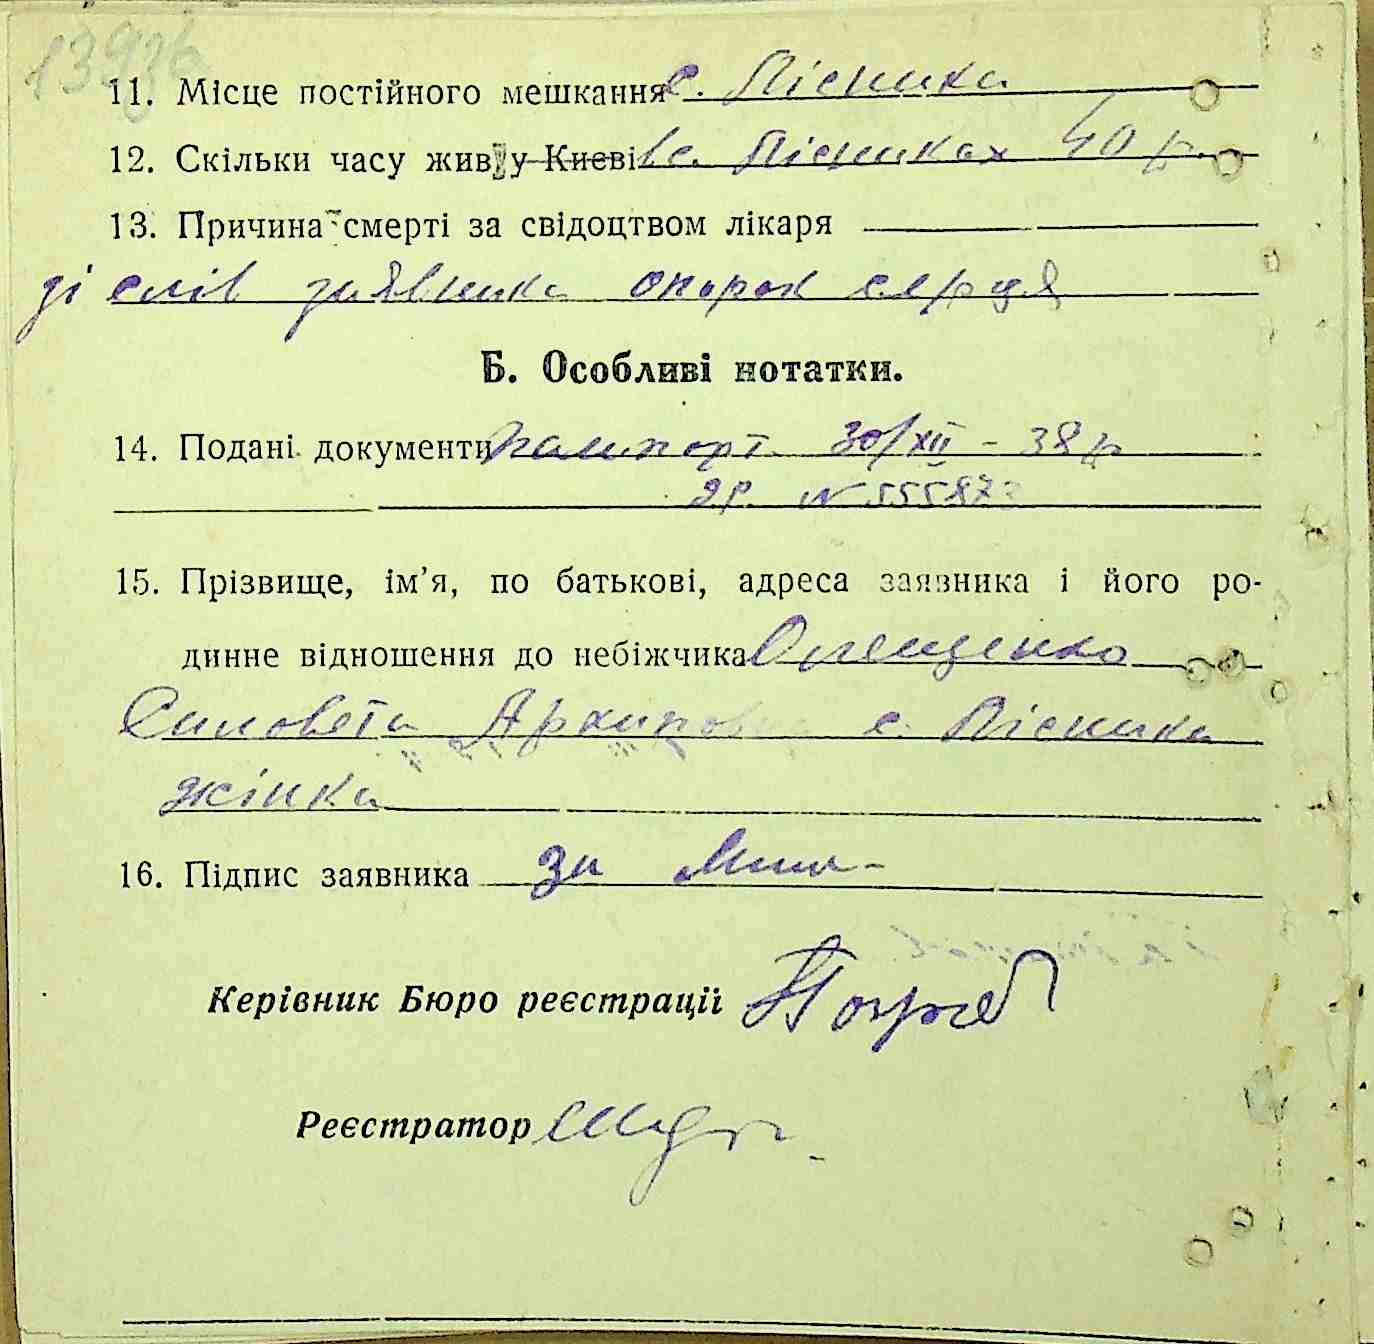 11. Місце постійного мешкання с. Пісники
12. Скільки часу жив у Києві в с. Пісниках 40 р.
13. Причина смерті за свідоцтвом лікаря
зі слів заявника опорок серця
Б. Особливі нотатки.
14. Подані документи пашпорт 30/XII – 38 р
яр. N 555873
15. Прізвище, ім’я, по батькові, адреса заявника і його ро-
динне відношення до небіжчика Олещенко
Єлизовета Архиповна с. Пісники
жінка
16. Підпис заявника за
Керівник Бюро реєстрації
Реєстратор